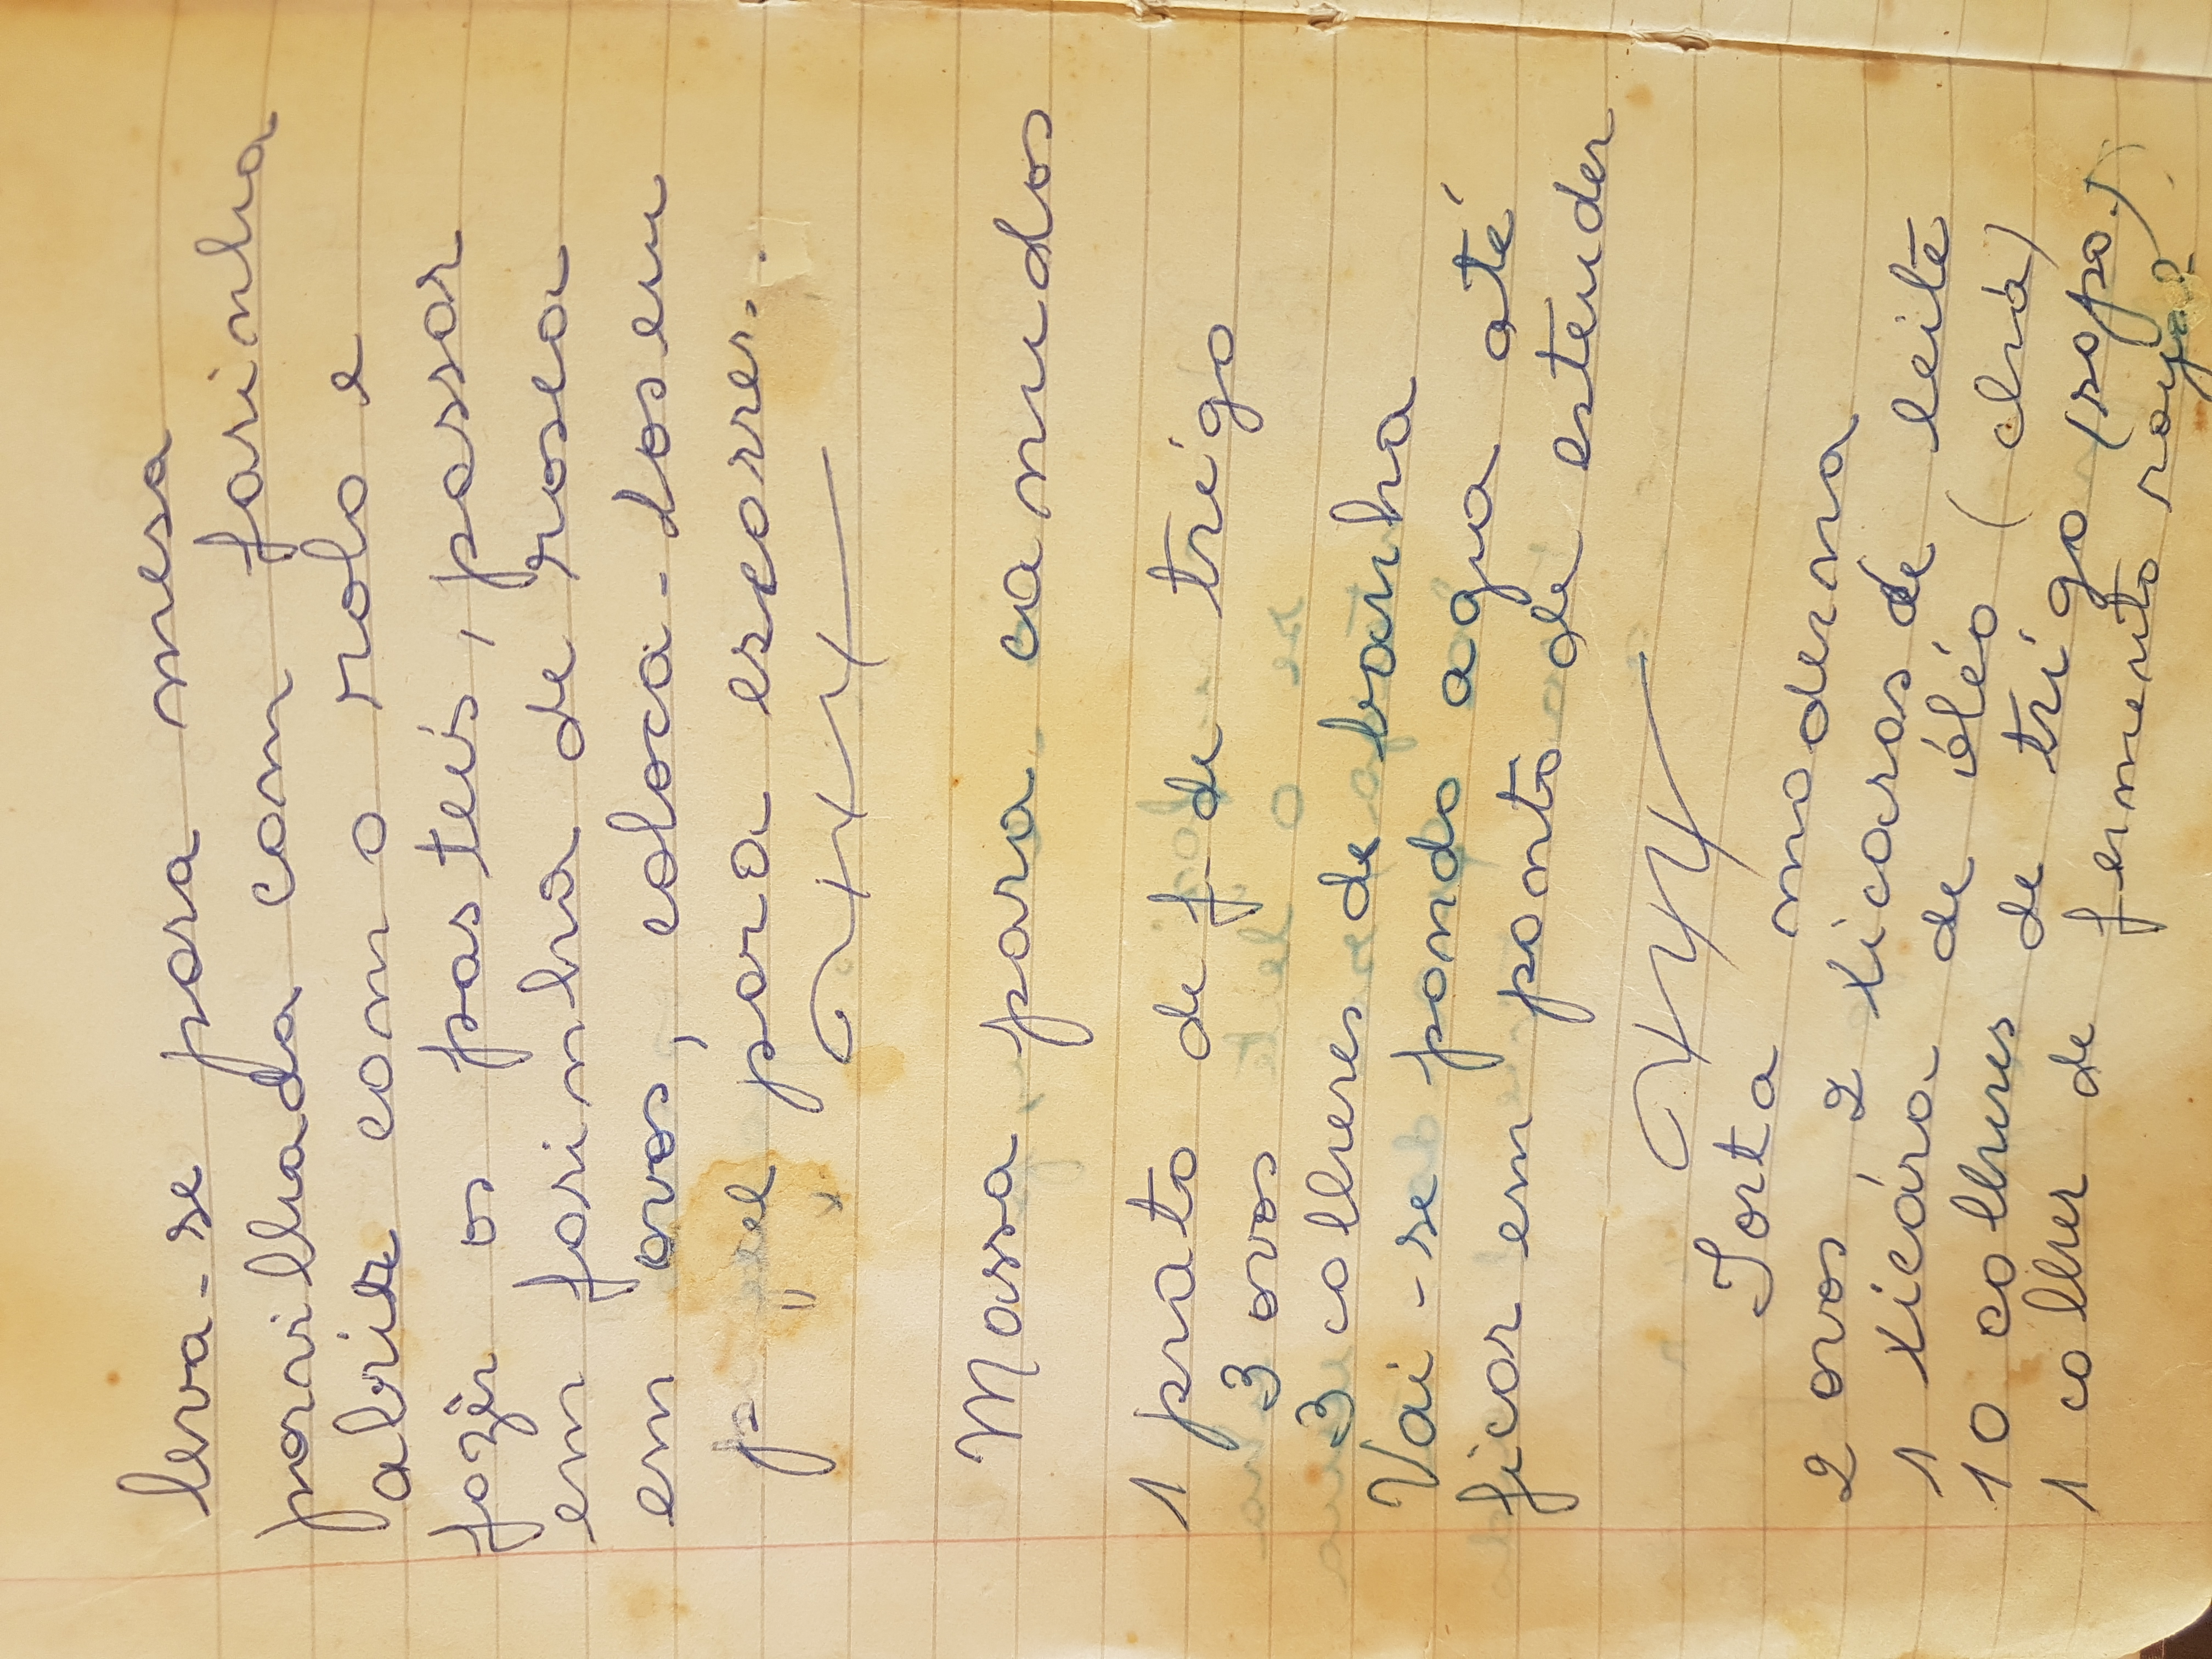 leva-se para mesa
porvilhada com farinha
abrir com o rolo e
fazêr os pasteis, passar
em farinha de rosca
em ovos, coloca-los em
para escorrer.
Massa para canudos
1 prato de f. de trigo
3 ovos
3 colheres de banha
Vai-se pondo agua até
ficar em ponto de estender
Torta moderna
2 ovos, 2 xicaras de leite
1 xicára de óléo (chá)
10 colheres de trigo (sopa.)
1 colher de fermento